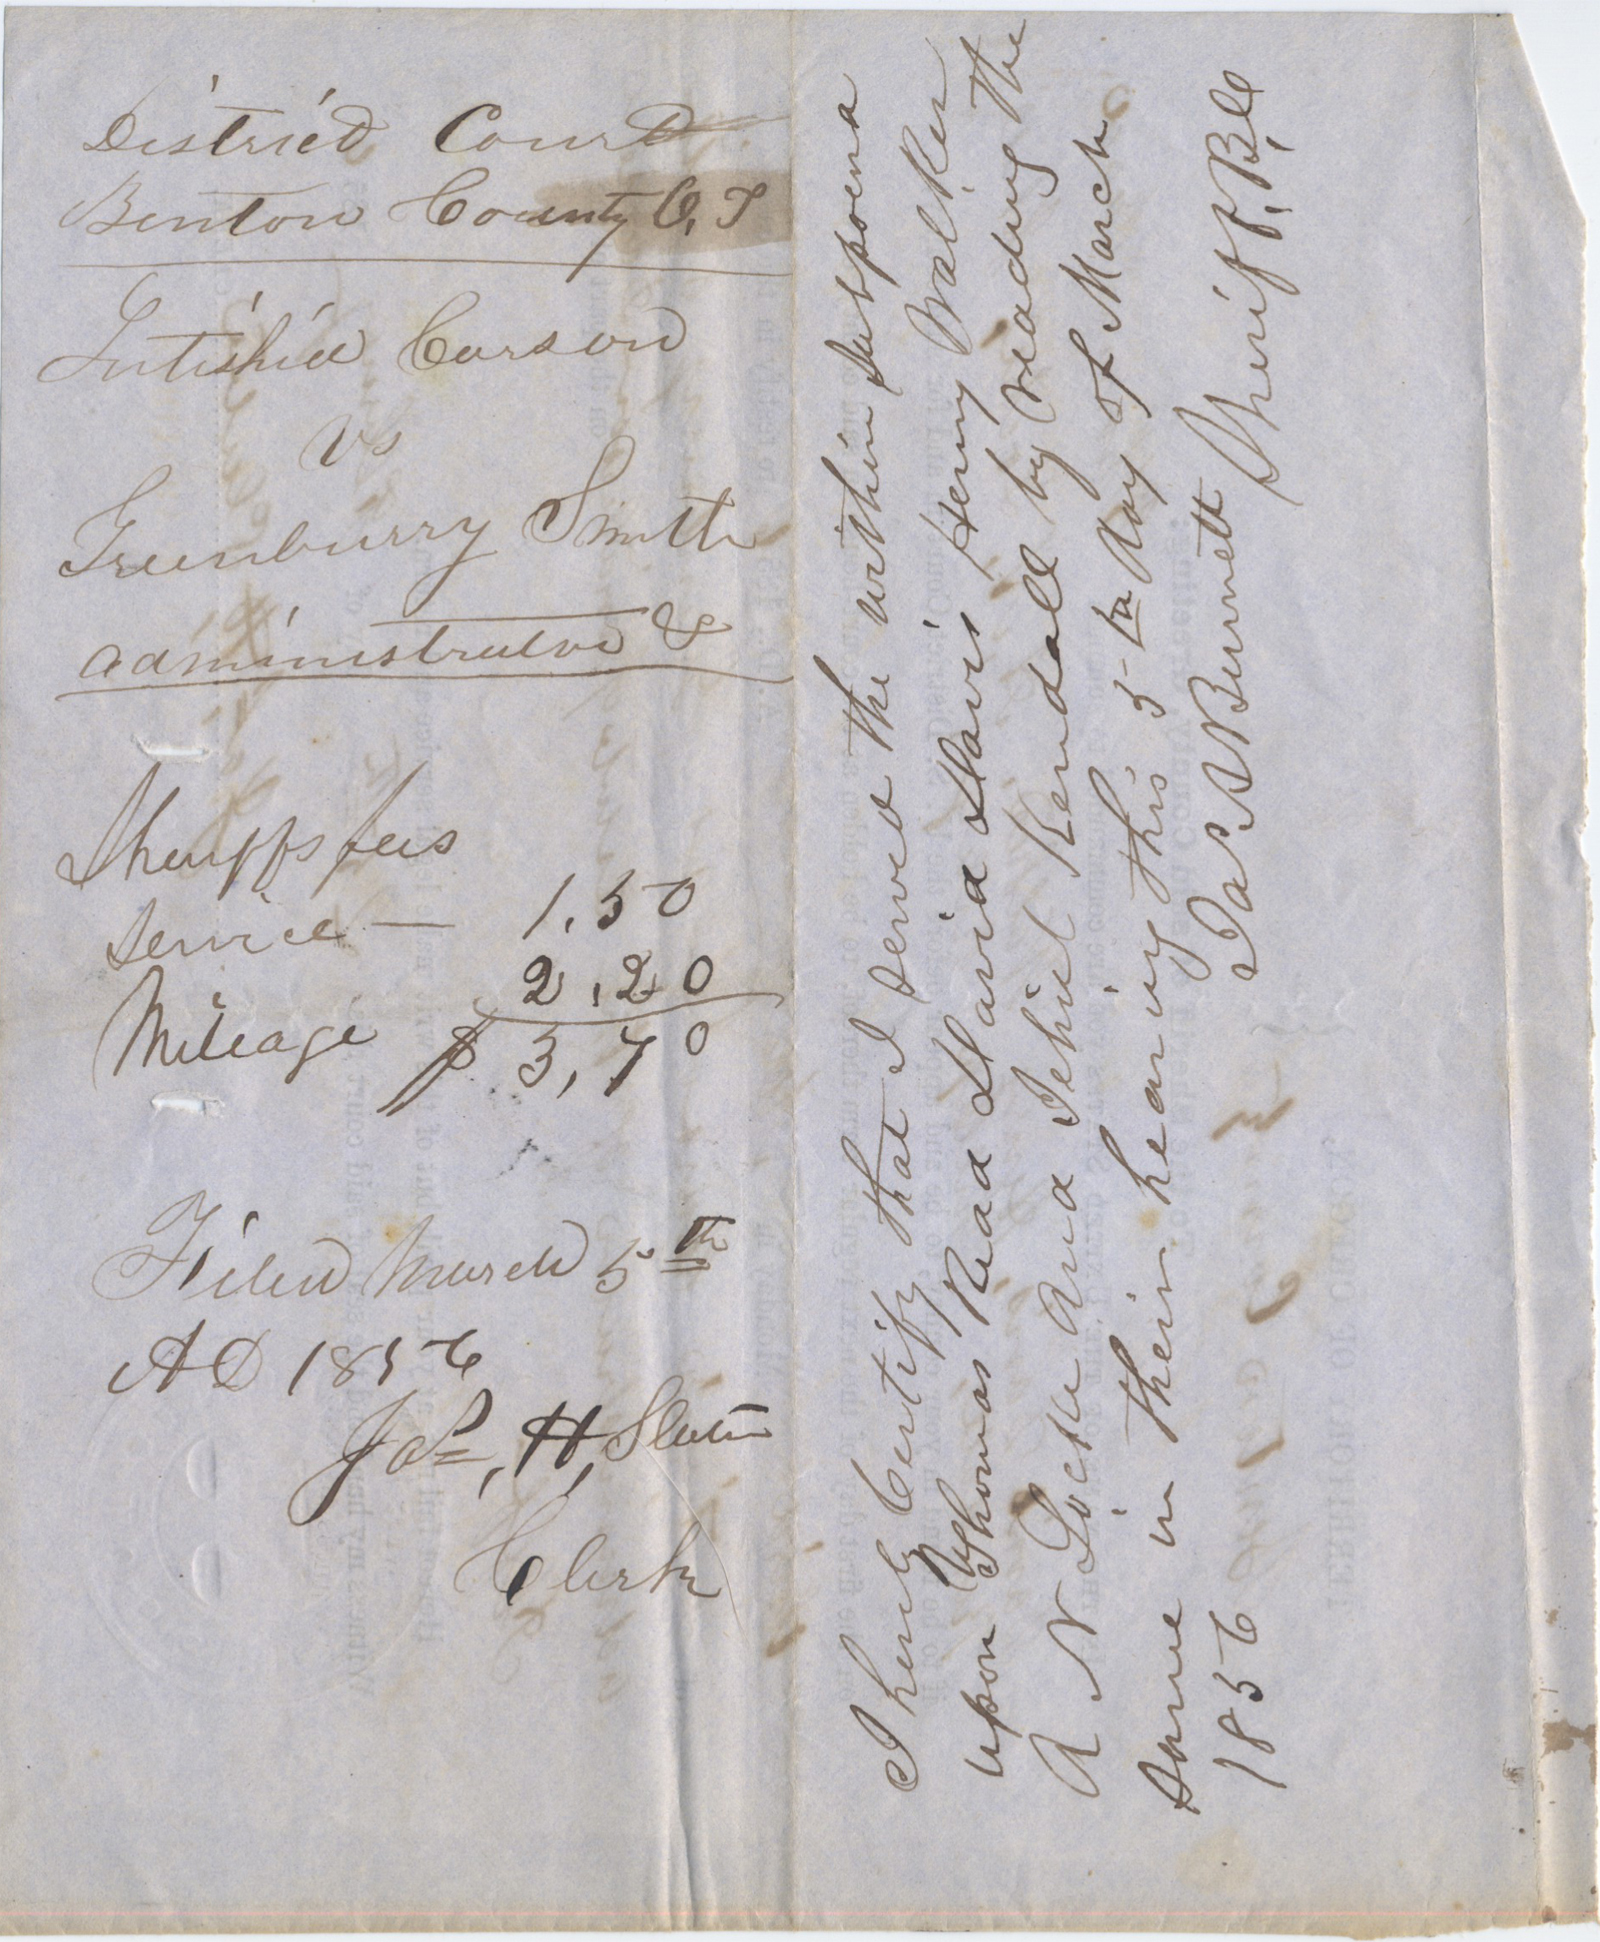 District Court
Benton County O. T
Lutishia Carson
vs
Greenburry Smith
administrator &
Sheriffs fees
Service — 1.50
Mileage 2.20
$ 3,70
Filed March 5th
AD 1856
Jas. H. Slater
Clerk
I herely Certify that I Served the within Subpoena
upon Thomas Read David Davis Henry Walker
A N Locke And Jehiel Kendall by reading the
Same in their hearing this 5th day of March
1856
Jas A Bennett Sheriff, B, Co